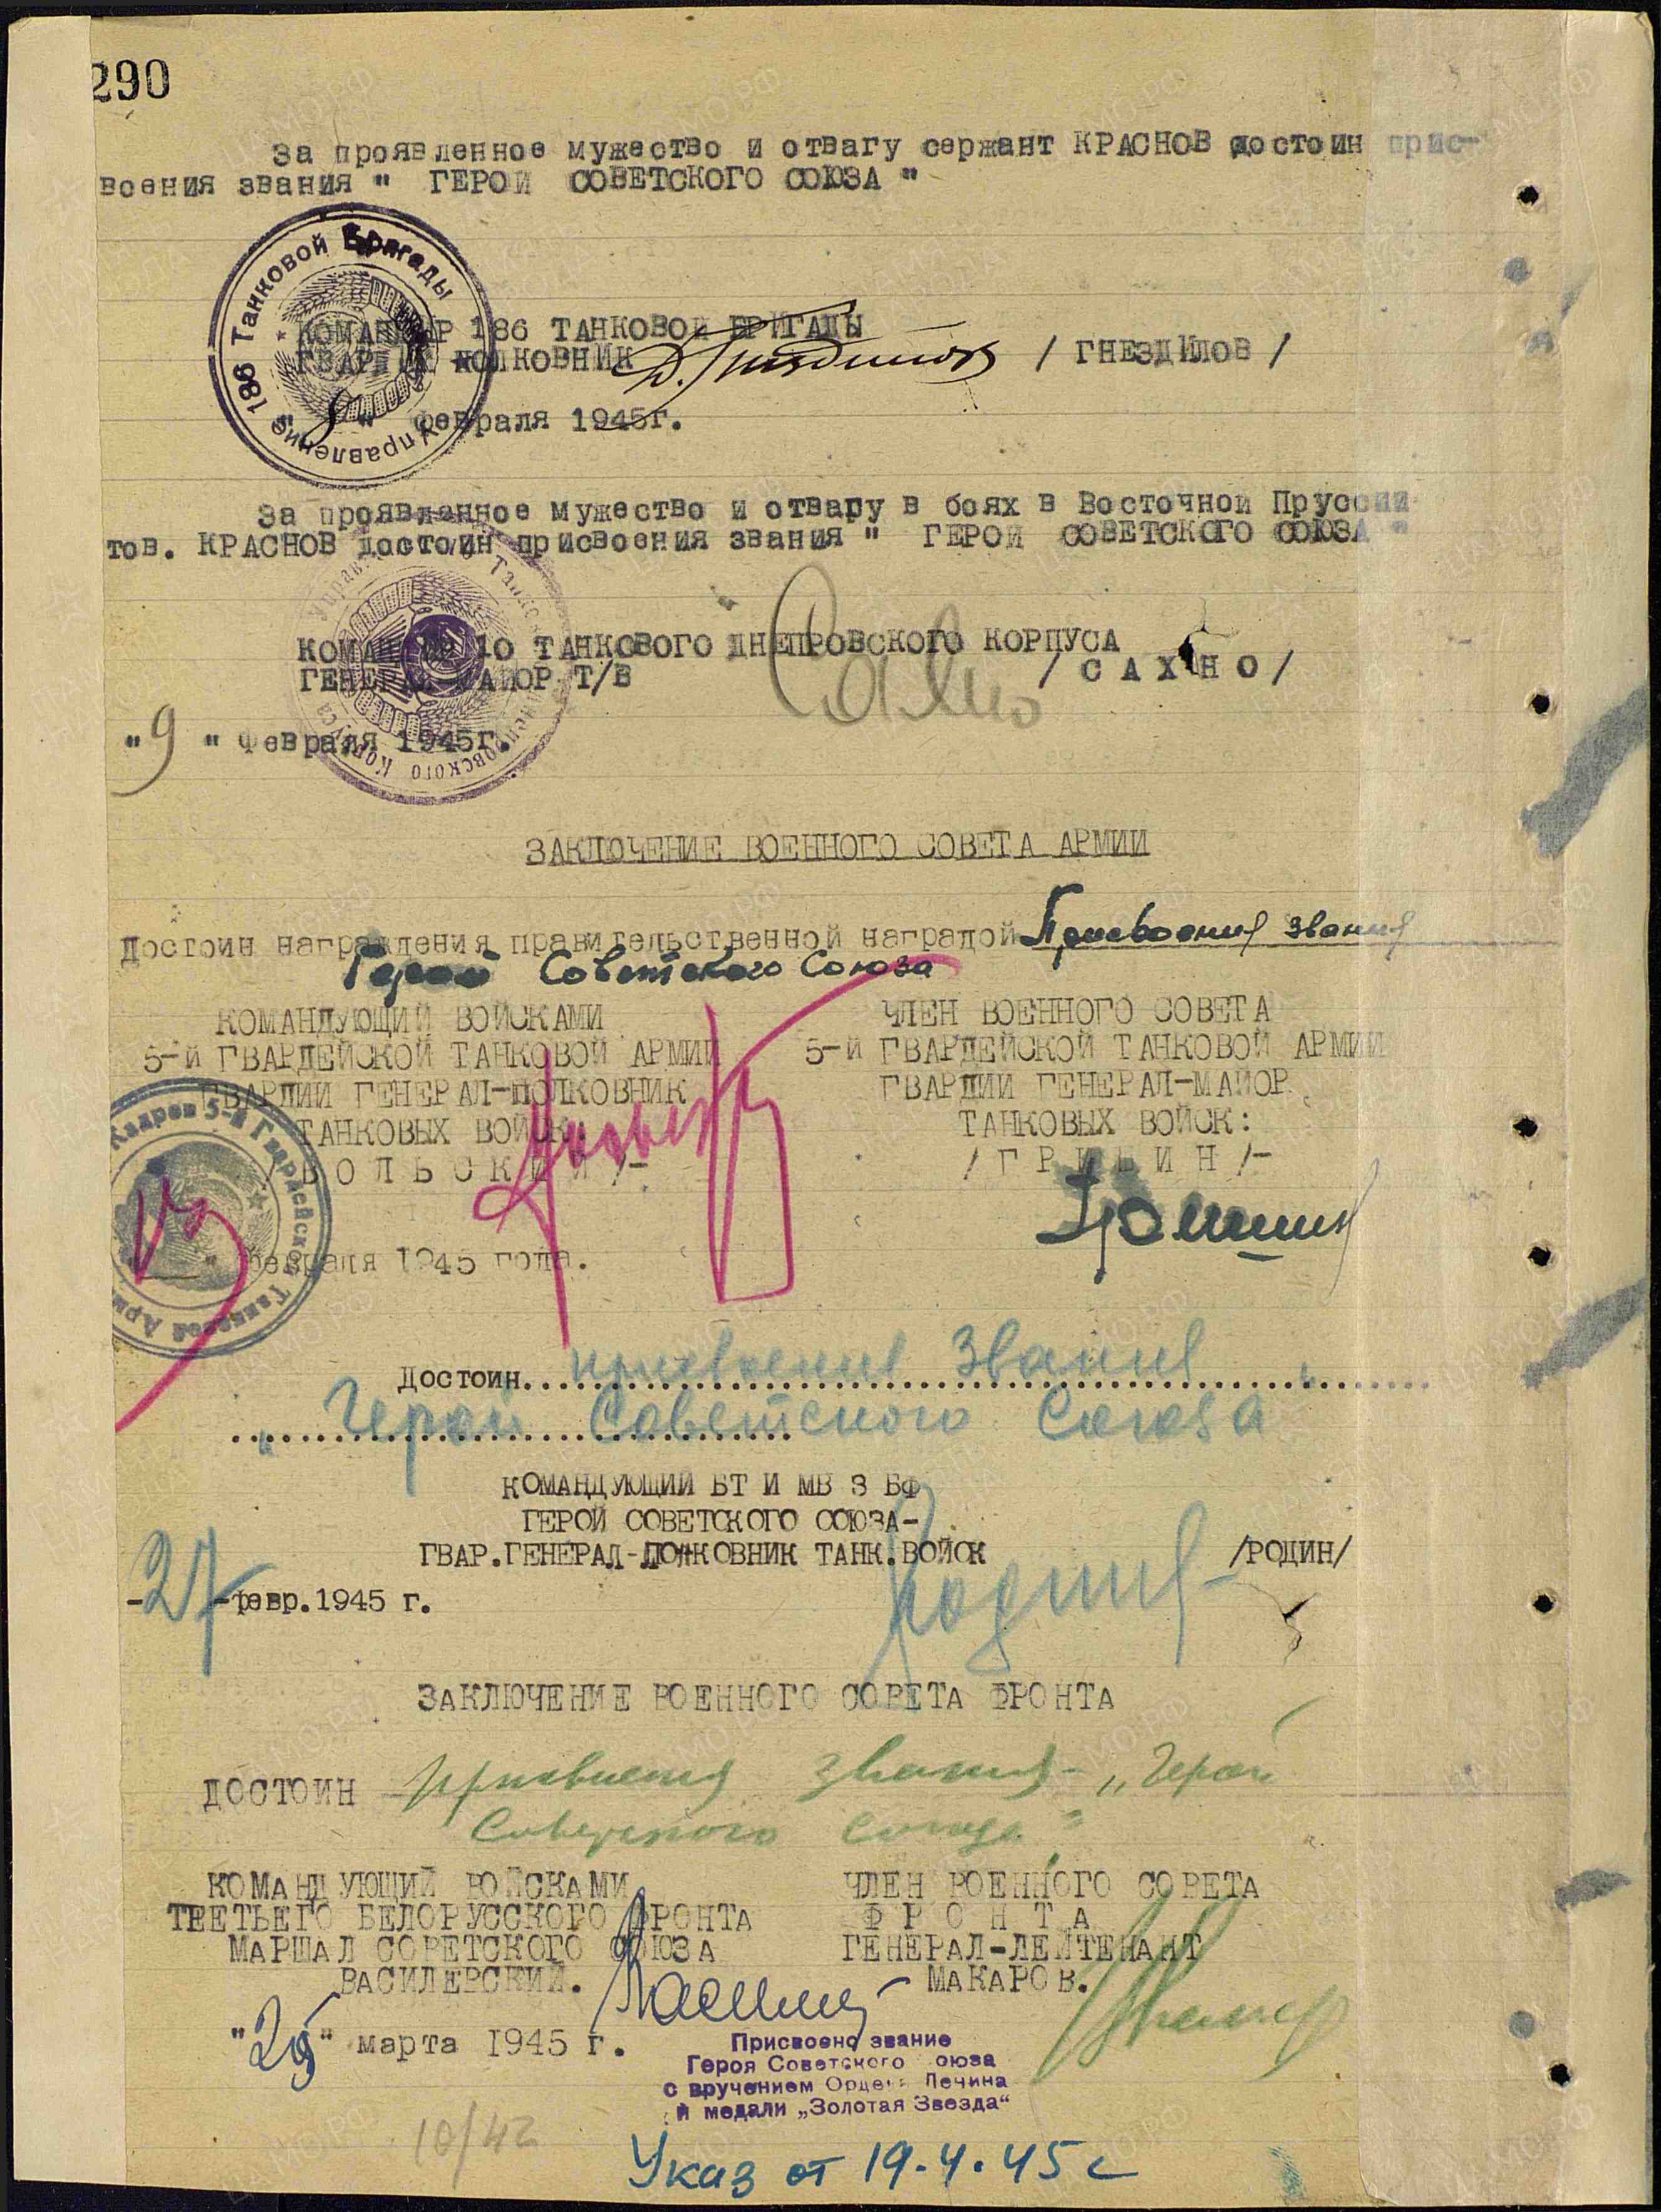 290
За проявленное мужество и отвагу сержант КРАСНОВ достоин прис-
воения звания " ГЕРОЙ СОВЕТСКОГО СОЮЗА "
186 Танковой Бригады
Управление
КОМАНДИР 186 ТАНКОВОЙ БРИГАДЫ
ГВАРДИИ ПОЛКОВНИК / ГНЕЗДИЛОВ /
" 8 " февраля 1945г.
За проявленное мужество и отвагу в боях в Восточной Пруссии
тов. КРАСНОВ достоин присвоения звания " ГЕРОЙ СОВЕТСКОГО СОЮЗА "
КОМАНДИР 10 ТАНКОВОГО ДНЕПРОВСКОГО КОРПУСА
ГЕНЕРАЛ-МАЙОР Т/В Сахно / С А Х Н О /
" 9 " февраля 1945г.
ЗАКЛЮЧЕНИЕ ВОЕННОГО СОВЕТА АРМИИ
Достоин награждения правительственной наградой Присвоения звания
Герой Советского Союза
КОМАНДУЮЩИЙ ВОЙСКАМИ ЧЛЕН ВОЕННОГО СОВЕТА
5-й ГВАРДЕЙСКОЙ ТАНКОВОЙ АРМИИ 5-й ГВАРДЕЙСКОЙ ТАНКОВОЙ АРМИИ
ГВАРДИИ ГЕНЕРАЛ-ПОЛКОВНИК ГВАРДИИ ГЕНЕРАЛ-МАЙОР
ТАНКОВЫХ ВОЙСК: ТАНКОВЫХ ВОЙСК:
/ В О Л Ь С К И Й /- / Г Р И Ш И Н /-
Кадров 5-й Гвардейской Танковой Арм
"___" февраля 1945 года.
Достоин присвоения Звания
„Герой Советского Союза"
КОМАНДУЮЩИЙ БТ И МВ 3 БФ
ГЕРОЙ СОВЕТСКОГО СОЮЗА-
ГВАР.ГЕНЕРАЛ-ПОЛКОВНИК ТАНК.ВОЙСК Родин /РОДИН/
-27-февр.1945 г.
ЗАКЛЮЧЕНИЕ ВОЕННОГО СОВЕТА ФРОНТА
ДОСТОИН присвоения звания - „Герой
Советского Союза"
КОМАНДУЮЩИЙ ВОЙСКАМИ ЧЛЕН ВОЕННОГО СОВЕТА
ТРЕТЬЕГО БЕЛОРУССКОГО ФРОНТА Ф Р О Н Т А
МАРШАЛ СОВЕТСКОГО СОЮЗА ГЕНЕРАЛ-ЛЕЙТЕНАНТ
ВАСИЛЕВСКИЙ. МАКАРОВ.
" " марта 1945 г.
Присвоено звание
Героя Советского оюза
с вручением Ордена Ленина
и медали „Золотая Звезда"
10/42
Указ от 19.4.45 г